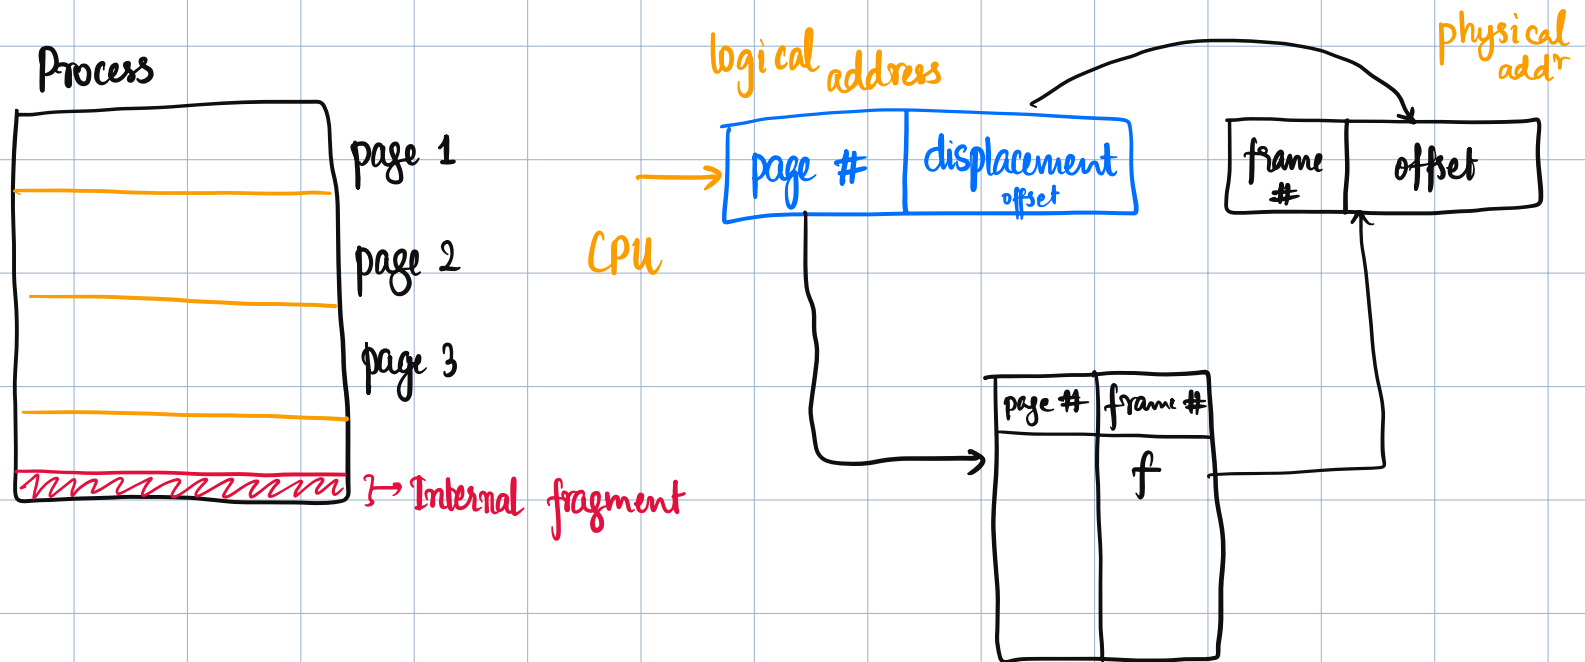 Process
page 1
page 2
page 3
Internal fragment
logical address
CPU
page #
displacement
offset
physical
addr
frame
#
offset
page #
frame #
f